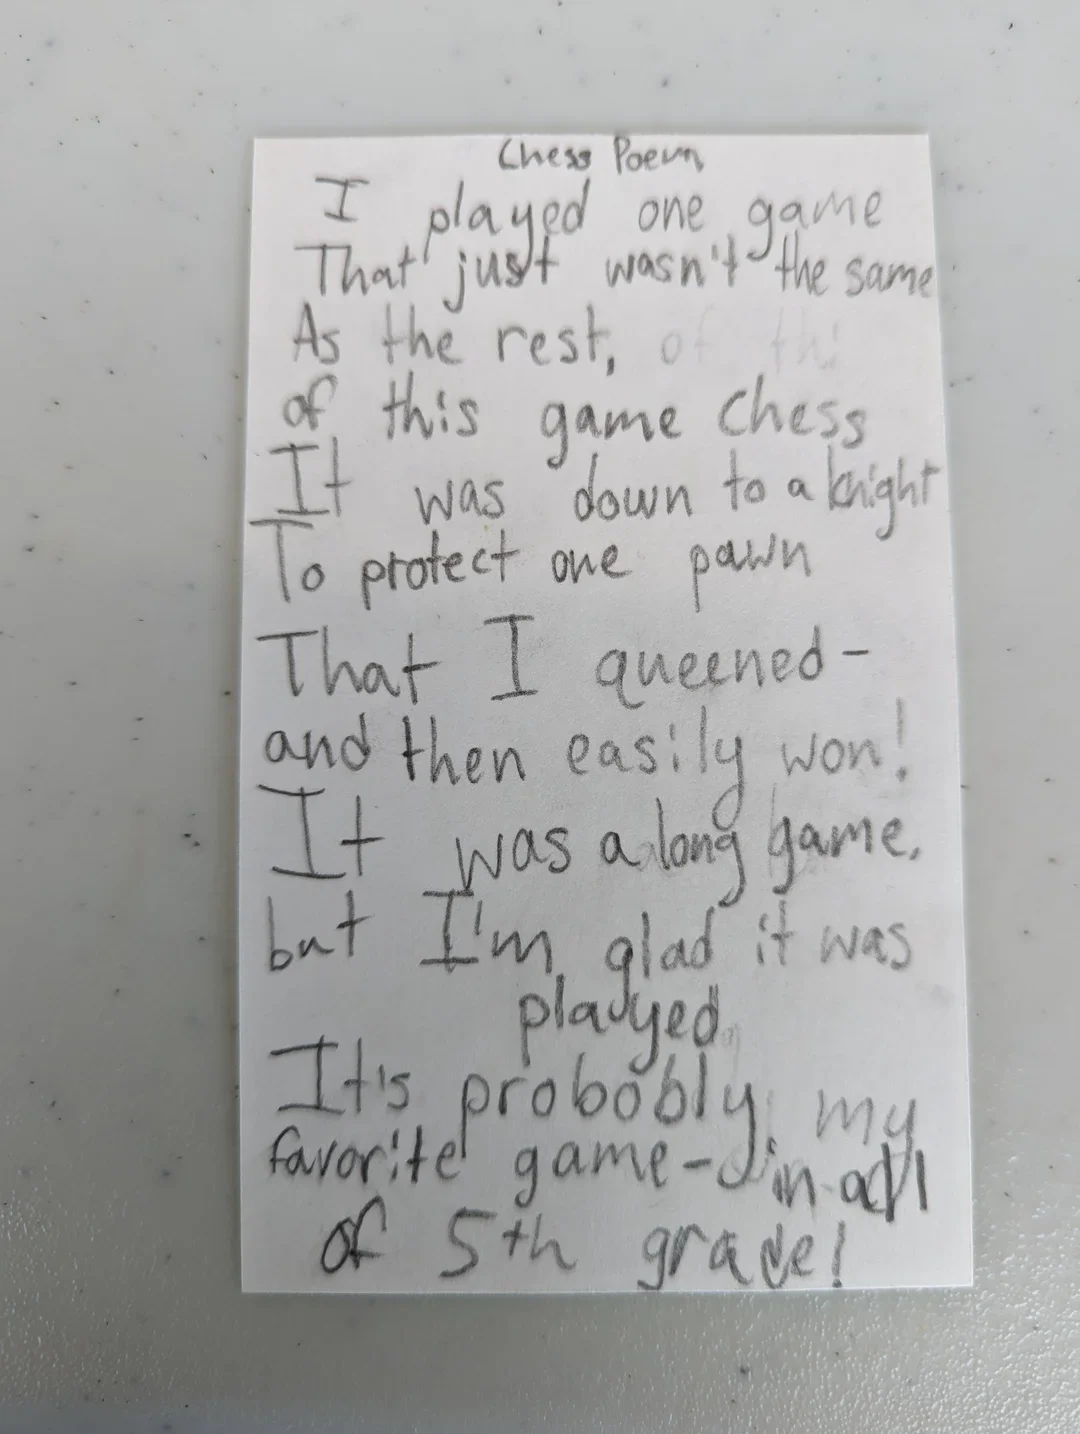 Chess Poem
I played one game
That just wasn't the same
As the rest,
of this game Chess
It was down to a knight
To protect one pawn
That I queened-
and then easily won!
It was a long game,
but I'm glad it was
played
It's probobly my
favorite game-in all
of 5th grade!